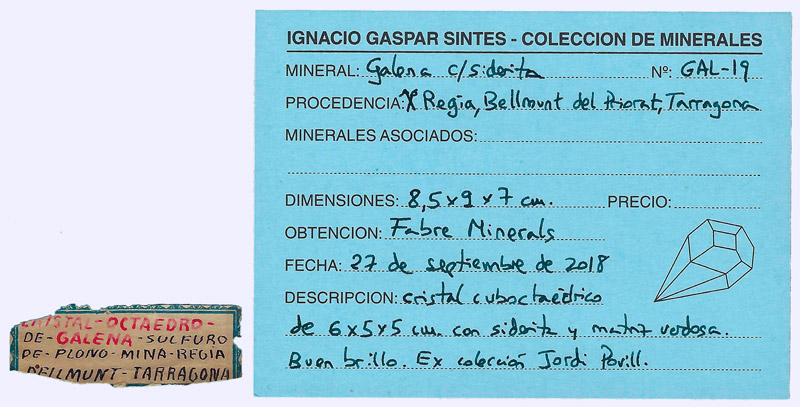 IGNACIO GASPAR SINTES - COLECCION DE MINERALES
MINERAL: Galena c/siderita Nº: GAL-19
PROCEDENCIA: Regia, Bellmunt del Priorat, Tarragona
MINERALES ASOCIADOS:
DIMENSIONES: 8,5 x 9 x 7 cm. PRECIO:
OBTENCION: Fabre Minerals
FECHA: 27 de septiembre de 2018
DESCRIPCION: cristal cuboctaédrico
de 6x5x5 cm. con siderita y matriz verdosa.
Buen brillo. Ex colección Jordi Povill.
CRISTAL-OCTAEDRO-
DE-GALENA-SULFURO
DE-PLONO-MINA-REGIA
TARRAGONA